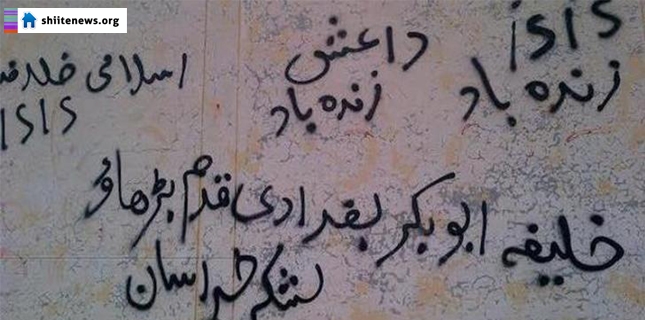 shiitenews.org
ISIS
زندہ باد
داعش
زندہ باد
اسلامی خلافہ
ISIS
خلیفہ ابوبکر بغدادی قدم بڑھاؤ
لشکر خراسان